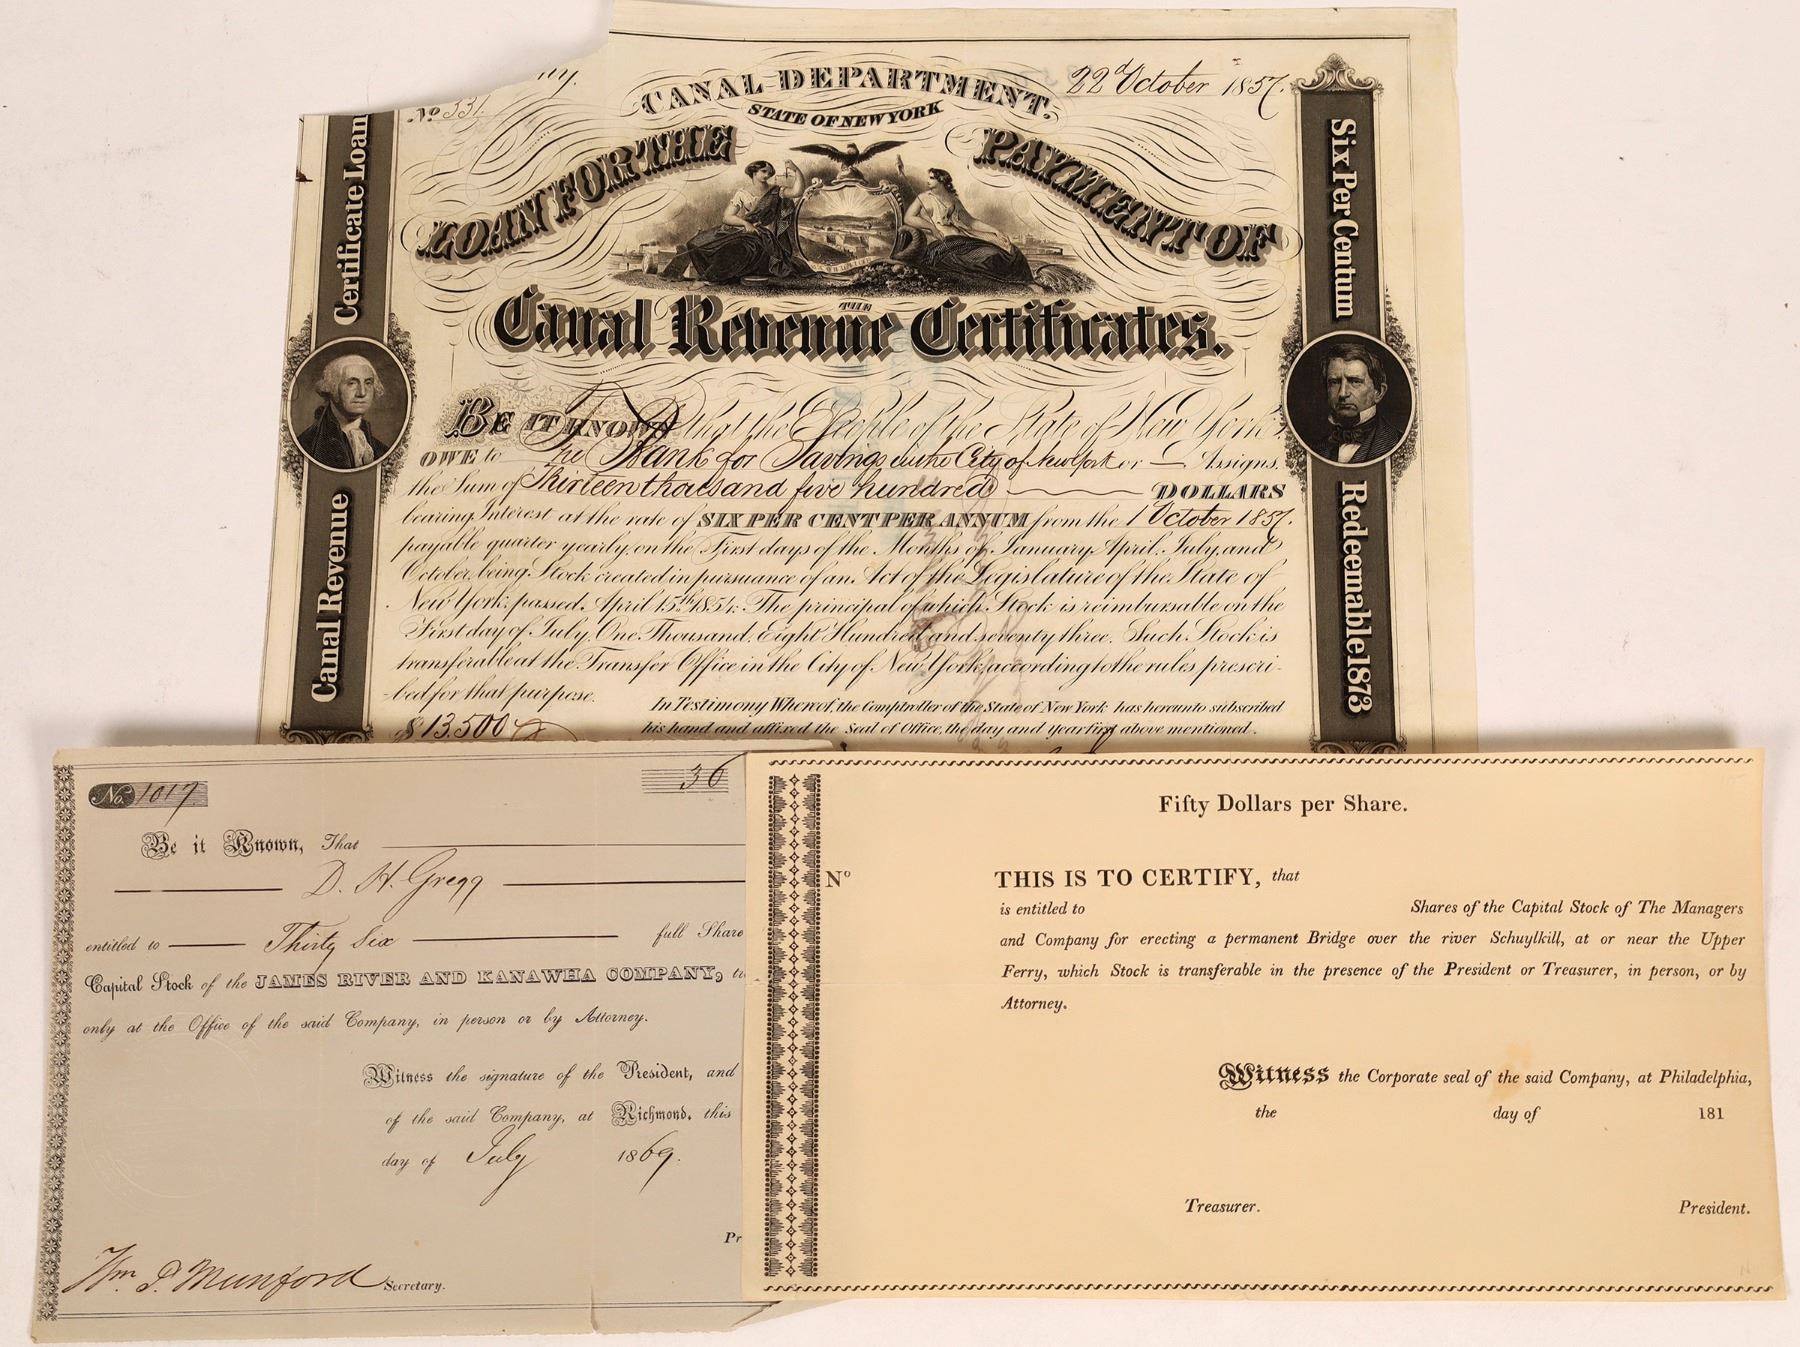 No 331
22d October 1857.
CANAL DEPARTMENT.
STATE OF NEW YORK
LOAN FOR THE PAYMENT OF
THE
Canal Revenue Certificates.
BE IT KNOWN That the People of the State of New York
OWE to The Bank for Savings in the City of New York or Assigns.
the Sum of Thirteen thousand five hundred DOLLARS
bearing Interest at the rate of SIX PER CENT PER ANNUM from the 1 October 1857.
payable quarter yearly, on the First days of the Months of January, April, July, and
October, being Stock created in pursuance of an Act of the Legislature of the State of
New York, passed April 15th 1854. The principal of which Stock is reimbursable on the
First day of July, One Thousand, Eight Hundred and seventy three. Such Stock is
transferable at the Transfer Office in the City of New York, according to the rules prescri-
bed for that purpose.
In Testimony Whereof, the Comptroller of the State of New York has hereunto subscribed
his hand and affixed the Seal of Office, the day and year first above mentioned.
$13.500
Canal Revenue
Certificate Loan
Six Per Centum
Redeemable 1873
No. 1017
36
Be it Known, That
D. H. Gregg
entitled to Thirty Six full Share
Capital Stock of the JAMES RIVER AND KANAWHA COMPANY,
only at the Office of the said Company, in person or by Attorney.
Witness the signature of the President, and
of the said Company, at Richmond, this
day of July 1869.
Pr
Wm P. Munford Secretary.
Fifty Dollars per Share.
No THIS IS TO CERTIFY, that
is entitled to Shares of the Capital Stock of The Managers
and Company for erecting a permanent Bridge over the river Schuylkill, at or near the Upper
Ferry, which Stock is transferable in the presence of the President or Treasurer, in person, or by
Attorney.
Witness the Corporate seal of the said Company, at Philadelphia,
the day of 181
Treasurer. President.